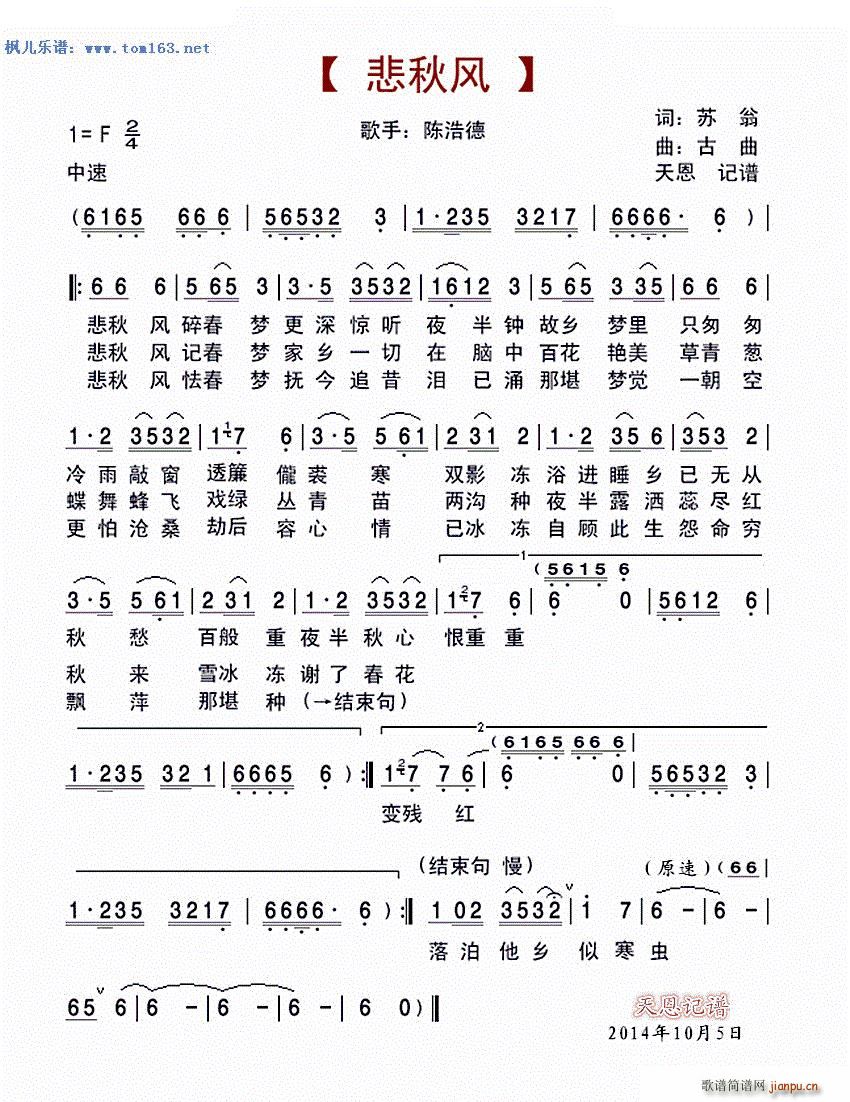 枫儿乐谱：www.tom163.net
【 悲秋风 】
1=F 2/4 歌手：陈浩德 词：苏 翁
曲：古 曲
中速 天恩 记谱
(6165 66 6 | 56532 3 | 1·235 3217 | 6666· 6 ) |
‖: 66 6 | 5 65 3 | 3·5 3532 | 1612 3 | 5 65 3 35 | 66 6 |
悲秋 风 碎春 梦 更 深 惊 听 夜 半 钟 故乡 梦里 只匆 匆
悲秋 风 记春 梦 家 乡 一 切 在 脑 中 百花 艳美 草青 葱
悲秋 风 怯春 梦 抚 今 追 昔 泪 已 涌 那堪 梦觉 一朝 空
1·2 3532 | 1 17 6 | 3·5 5 61 | 2 31 2 | 1·2 35 6 | 353 2 |
冷 雨 敲 窗 透簾 儱 裘 寒 双影 冻 浴 进 睡 乡 已 无 从
蝶 舞 蜂 飞 戏绿 丛 青 苗 两沟 种 夜 半 露 洒 蕊 尽 红
更 怕 沧 桑 劫后 容 心 情 已冰 冻 自 顾 此 生 怨 命 穷
1
(5615 6
3·5 5 61 | 2 31 2 | 1·2 3532 | 1 27 6 | 6 0 | 5612 6 |
秋 愁 百般 重 夜 半 秋 心 恨重 重
秋 来 雪冰 冻 谢 了 春 花
飘 萍 那堪 种 (→结束句)
2
(6165 66 6 |
1·235 32 1 | 6665 6 ) :‖ 1 27 7 6 | 6 0 | 56532 3 |
变残 红
(结束句 慢) (原速) (66 |
1·235 3217 | 6666· 6 ) :‖ 1 02 3532 | 1 7 | 6 - | 6 - |
落 泊 他 乡 似 寒 虫
65 6 | 6 - | 6 - | 6 0 ) ‖
天恩记谱
2014年10月5日
歌谱简谱网
jianpu.cn